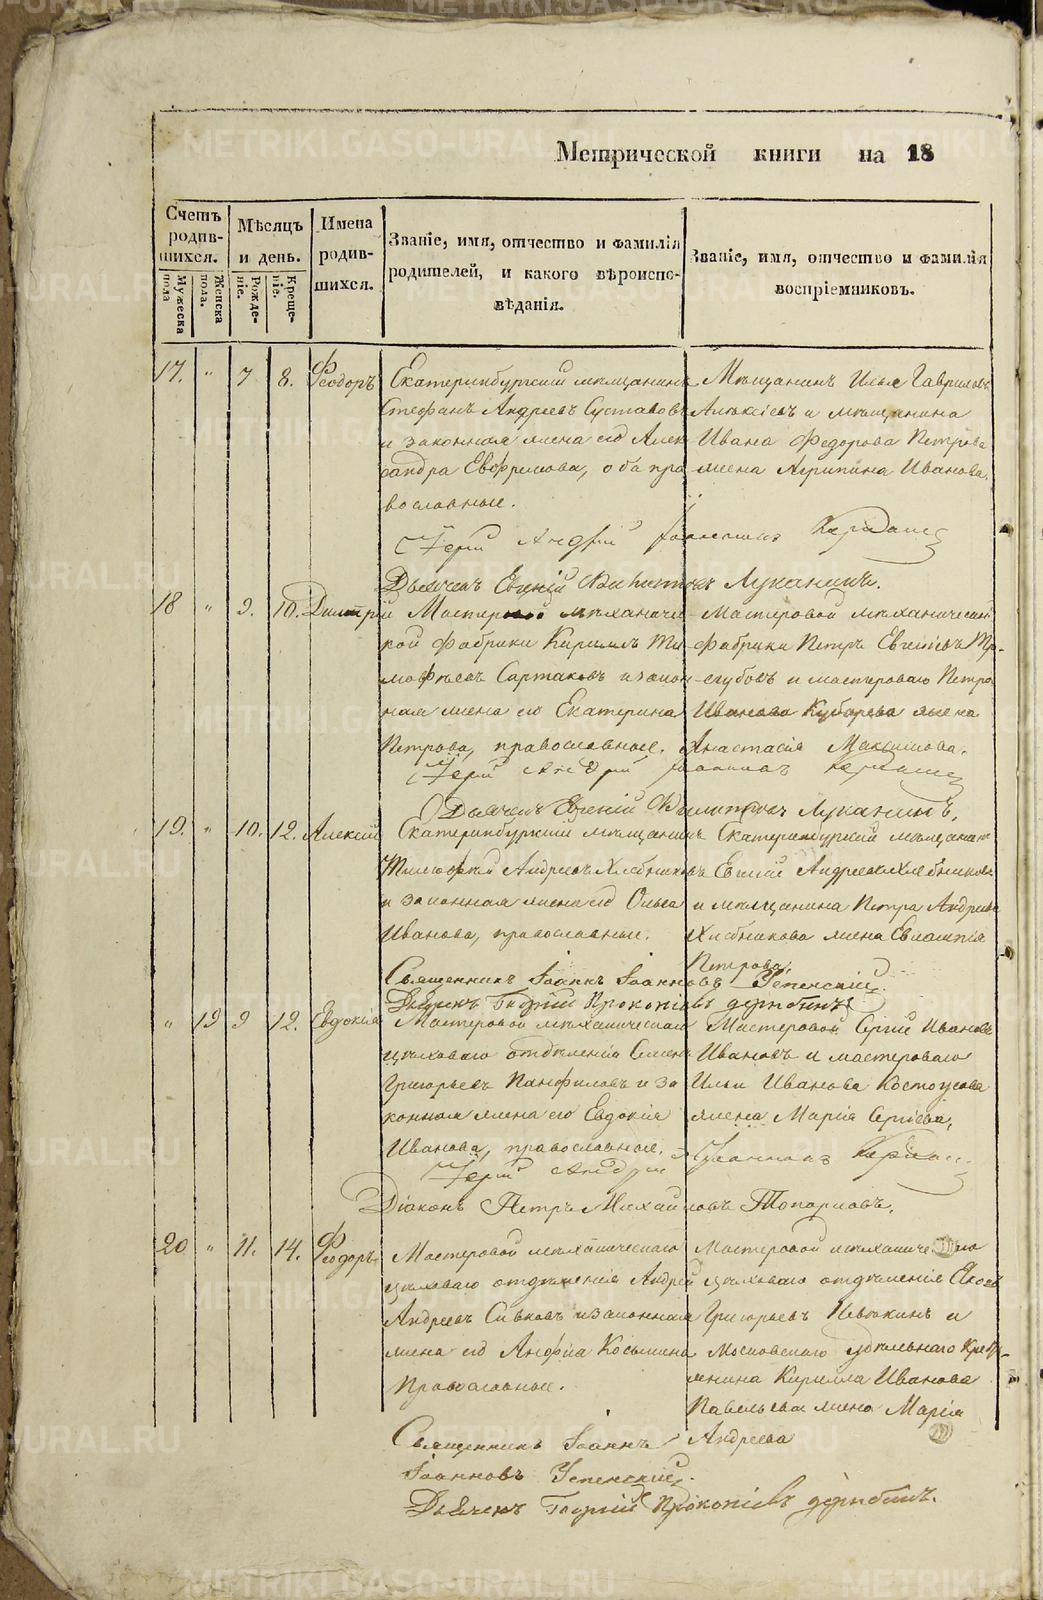 Метрической книги на 18
Счетъ родив-шихся.
Мѣсяцъ и день.
Имена родив-шихся.
Званіе, имя, отчество и фамилія родителей, и какого вѣроиспо-вѣданія.
Званіе, имя, отчество и фамилія воспріемниковъ.
Мужеска пола
Женска пола.
Рожде-ніе.
Креще-ніе.
17. " 7 8. Феодоръ Екатеринбургскій мѣщанинъ Мѣщанинъ Илья Гавриловъ
Стефанъ Андреевъ Суставовъ Алексіевъ и мѣщанина
и законная жена его Алек Ивана Федорова Петрова
сандра Евфремова, оба пра жена Агрипина Иванова.
вославные.
Іерей Андрей
Дьячекъ Евгеній Луканинъ.
18 " 9. 10. Димитрій Мастеровой механиче- Мастеровой механической
кой фабрики Кириллъ Ти- фабрики Петръ
мофѣевъ Сартаковъ и закон- и мастероваго Петра
ная жена его Екатерина Иванова Кубарева жена
Петрова, православные. Анастасія Максимова.
Іерей Андрей
Дьячекъ Евгеній Луканинъ.
19. " 10. 12. Алексій Екатеринбургскій мѣщанинъ Екатеринбургскій мѣщанинъ
Тимофей Андреевъ Хлебниковъ Евгеній Андреевъ Хлебниковъ
и законная жена его Ольга и мѣщанина Петра Андреева
Иванова, православные. Хлебникова жена Евлампія
Петрова.
Священникъ Іоаннъ Іоанновъ Успенскій.
Дьячекъ Георгій Прокопіевъ
" 19 9 12. Евдокія Мастеровой механическаго Мастеровой Сергій Ивановъ
цѣховаго отдѣленія Семенъ Ивановъ и мастероваго
Григорьевъ Панфиловъ и за Ильи Иванова Костоусова
конная жена его Евдокія жена Марія Сергіева.
Иванова, православные.
Іерей Андрей
Діаконъ Петръ Михайловъ Топорковъ.
20 " 11. 14. Феодоръ Мастеровой механическаго Мастеровой механическаго
цѣховаго отдѣленія Андрей цѣховаго отдѣленія Яковъ
Андреевъ Сивковъ и законная Григорьевъ и
жена его Анфиса Косьмина Московскаго удѣльнаго кре
Православные. Кирилла Иванова
жена Марія
Священникъ Іоаннъ Андреева
Іоанновъ Успенскій.
Дьячекъ Георгій Прокопіевъ
METRIKI.GASO-URAL.RU